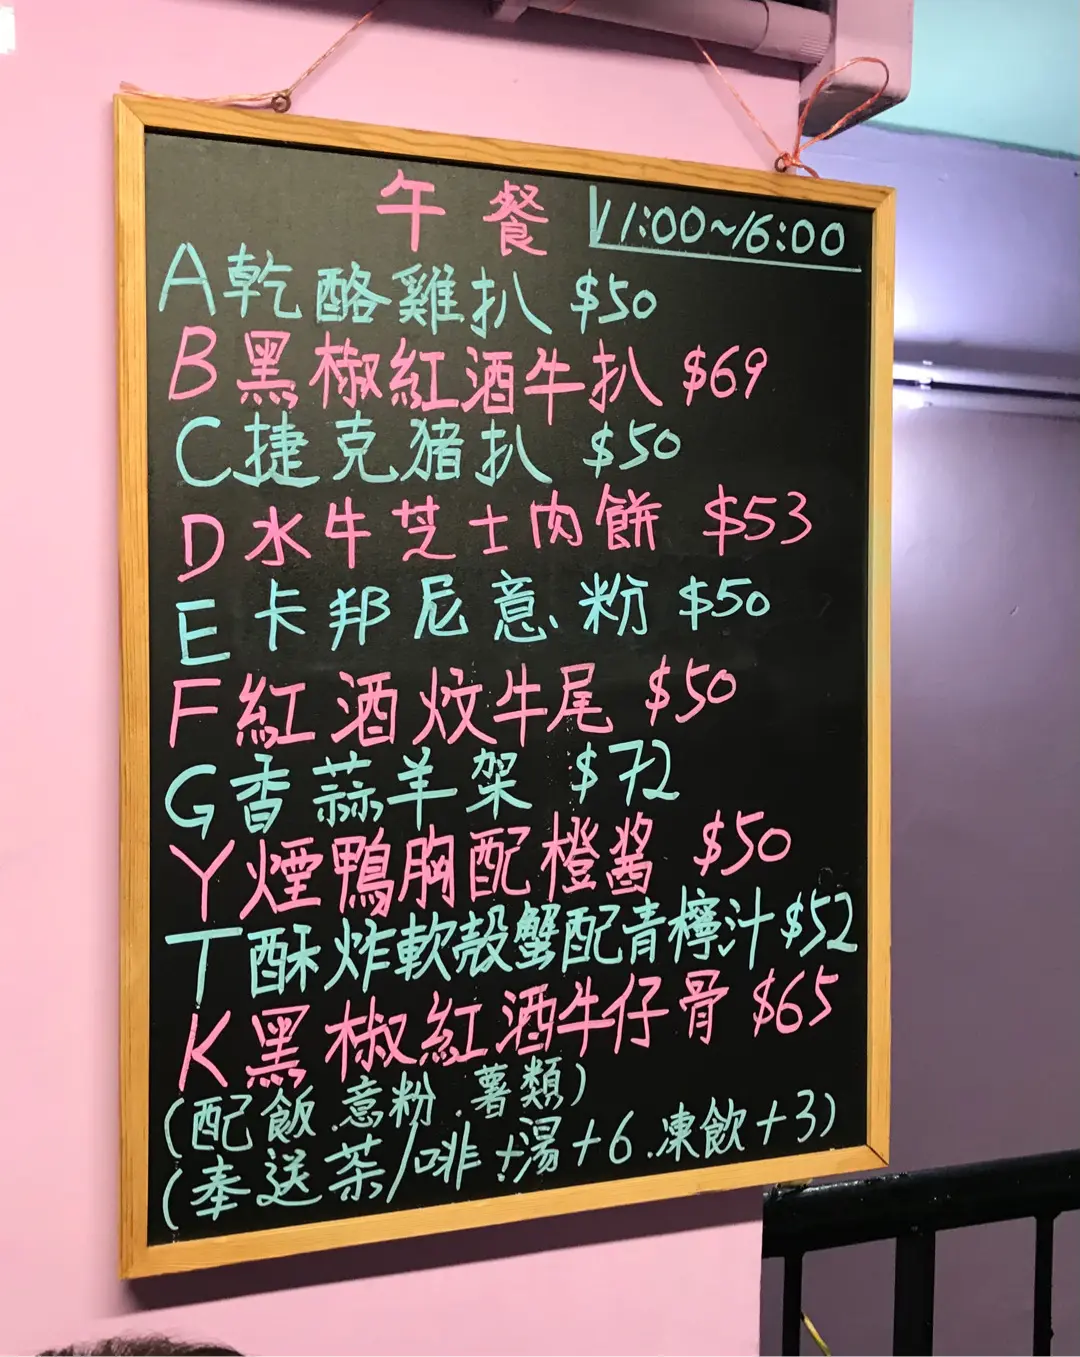 午餐 11:00~16:00
A乾酪雞扒 $50
B黑椒紅酒牛扒 $69
C捷克豬扒 $50
D水牛芝士肉餅 $53
E卡邦尼意粉 $50
F紅酒炆牛尾 $50
G香蒜羊架 $72
Y煙鴨胸配橙酱 $50
T酥炸軟殼蟹配青檸汁 $52
K黑椒紅酒牛仔骨 $65
(配飯.意粉.薯類)
(奉送茶/啡 +湯+6.凍飲+3)